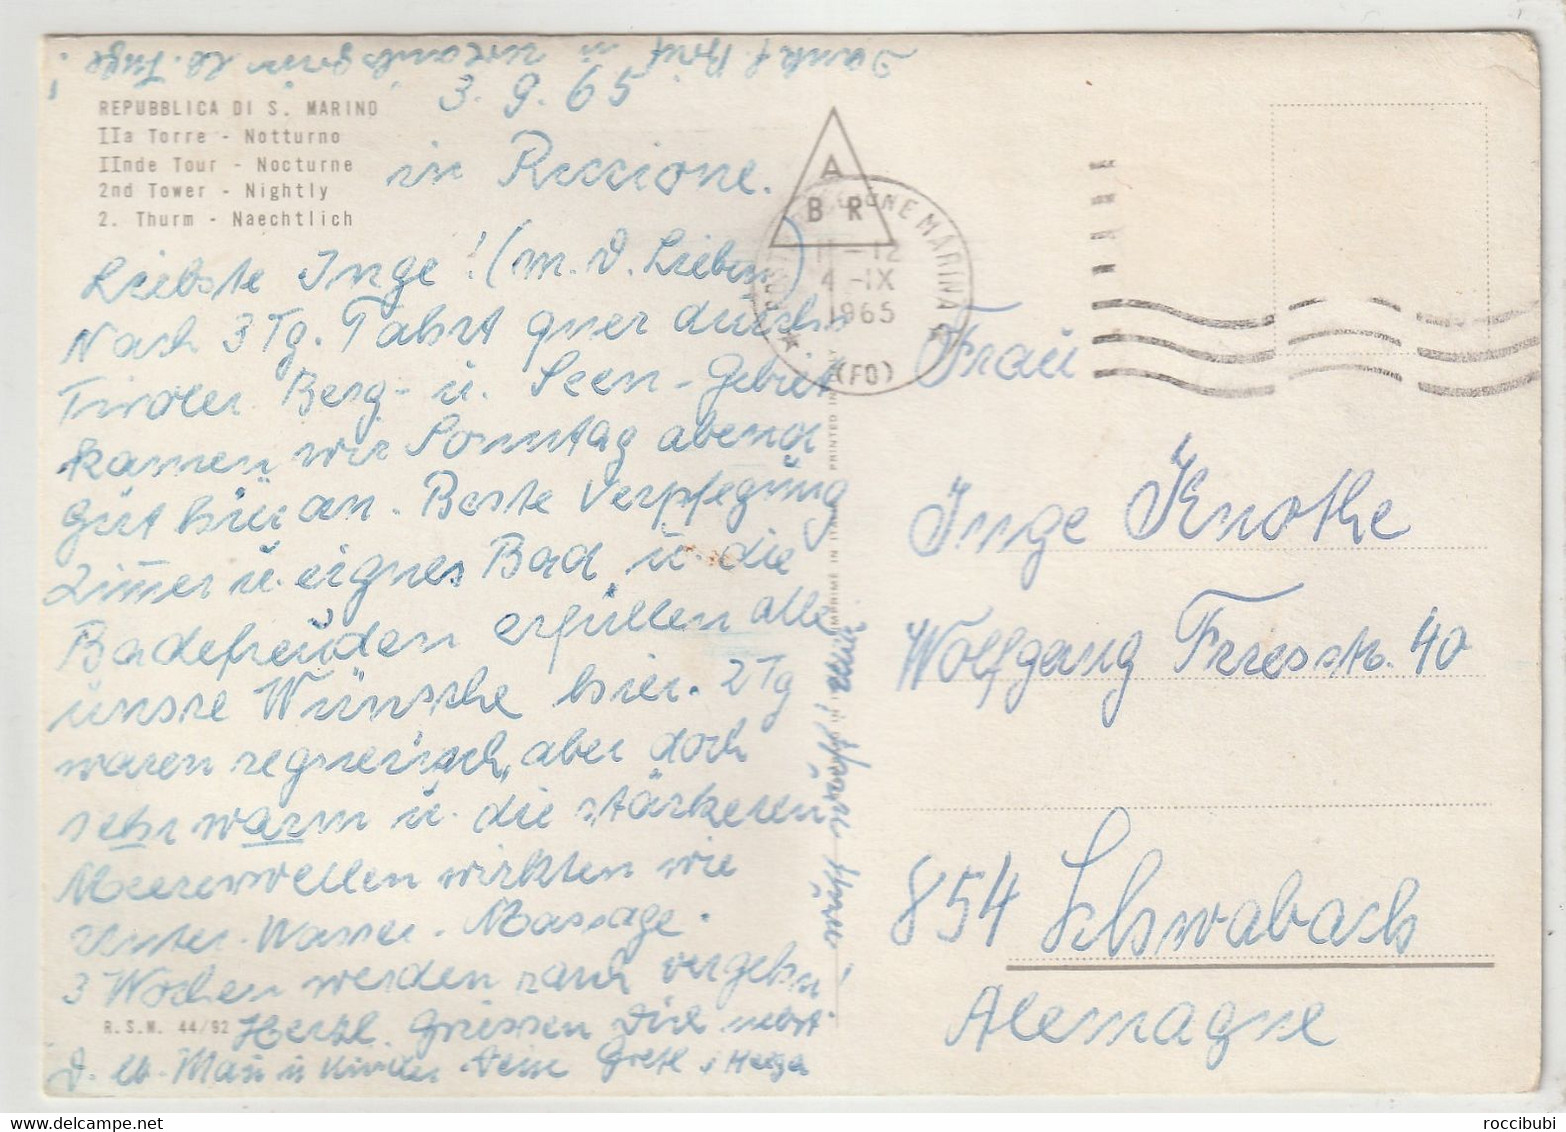 Dank f. Brief u.
REPUBBLICA DI S. MARINO
IIa Torre - Notturno
IInde Tour - Nocturne
2nd Tower - Nightly
2. Thurm - Naechtlich
3.9.65
in Riccione.
Liebste Inge! (m. D. Lieben)
Nach 3 Tg. Fahrt quer durchs
Tiroler Berg- u. Seen-Gebiet
kamen wir Sonntag abend
gut hier an. Beste Verpflegung
Zimmer u. eignes Bad u. die
Badefreuden erfüllen alle
unsre Wünsche hier. 2 Tg
waren regnerisch, aber doch
sehr warm u. die stärkeren
Meereswellen wirkten wie
Unter-Wasser-Massage.
3 Wochen werden rasch vergehn!
Herzl. Grüssen Dich nebst
D. lb. Mann u Kinder Deine Gretl u Helga
R.S.M. 44/92
A
BR
RICCIONE MARINA
11-12
4-IX
1965
(FO)
PRINTED IN ITALY
IMPRIME IN
Frau
Inge Knothe
Wolfgang Friesstr. 40
854 Schwabach
Alemagne
roccibubi